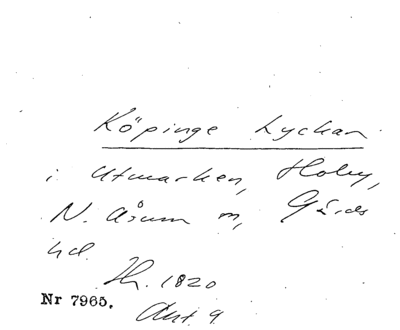 Köpinge Lyckan
i Utmarken, Hoby,
N. Åsum sn, Gärds
hd.
Th. 1820
Nr 7965.
Akt. 9